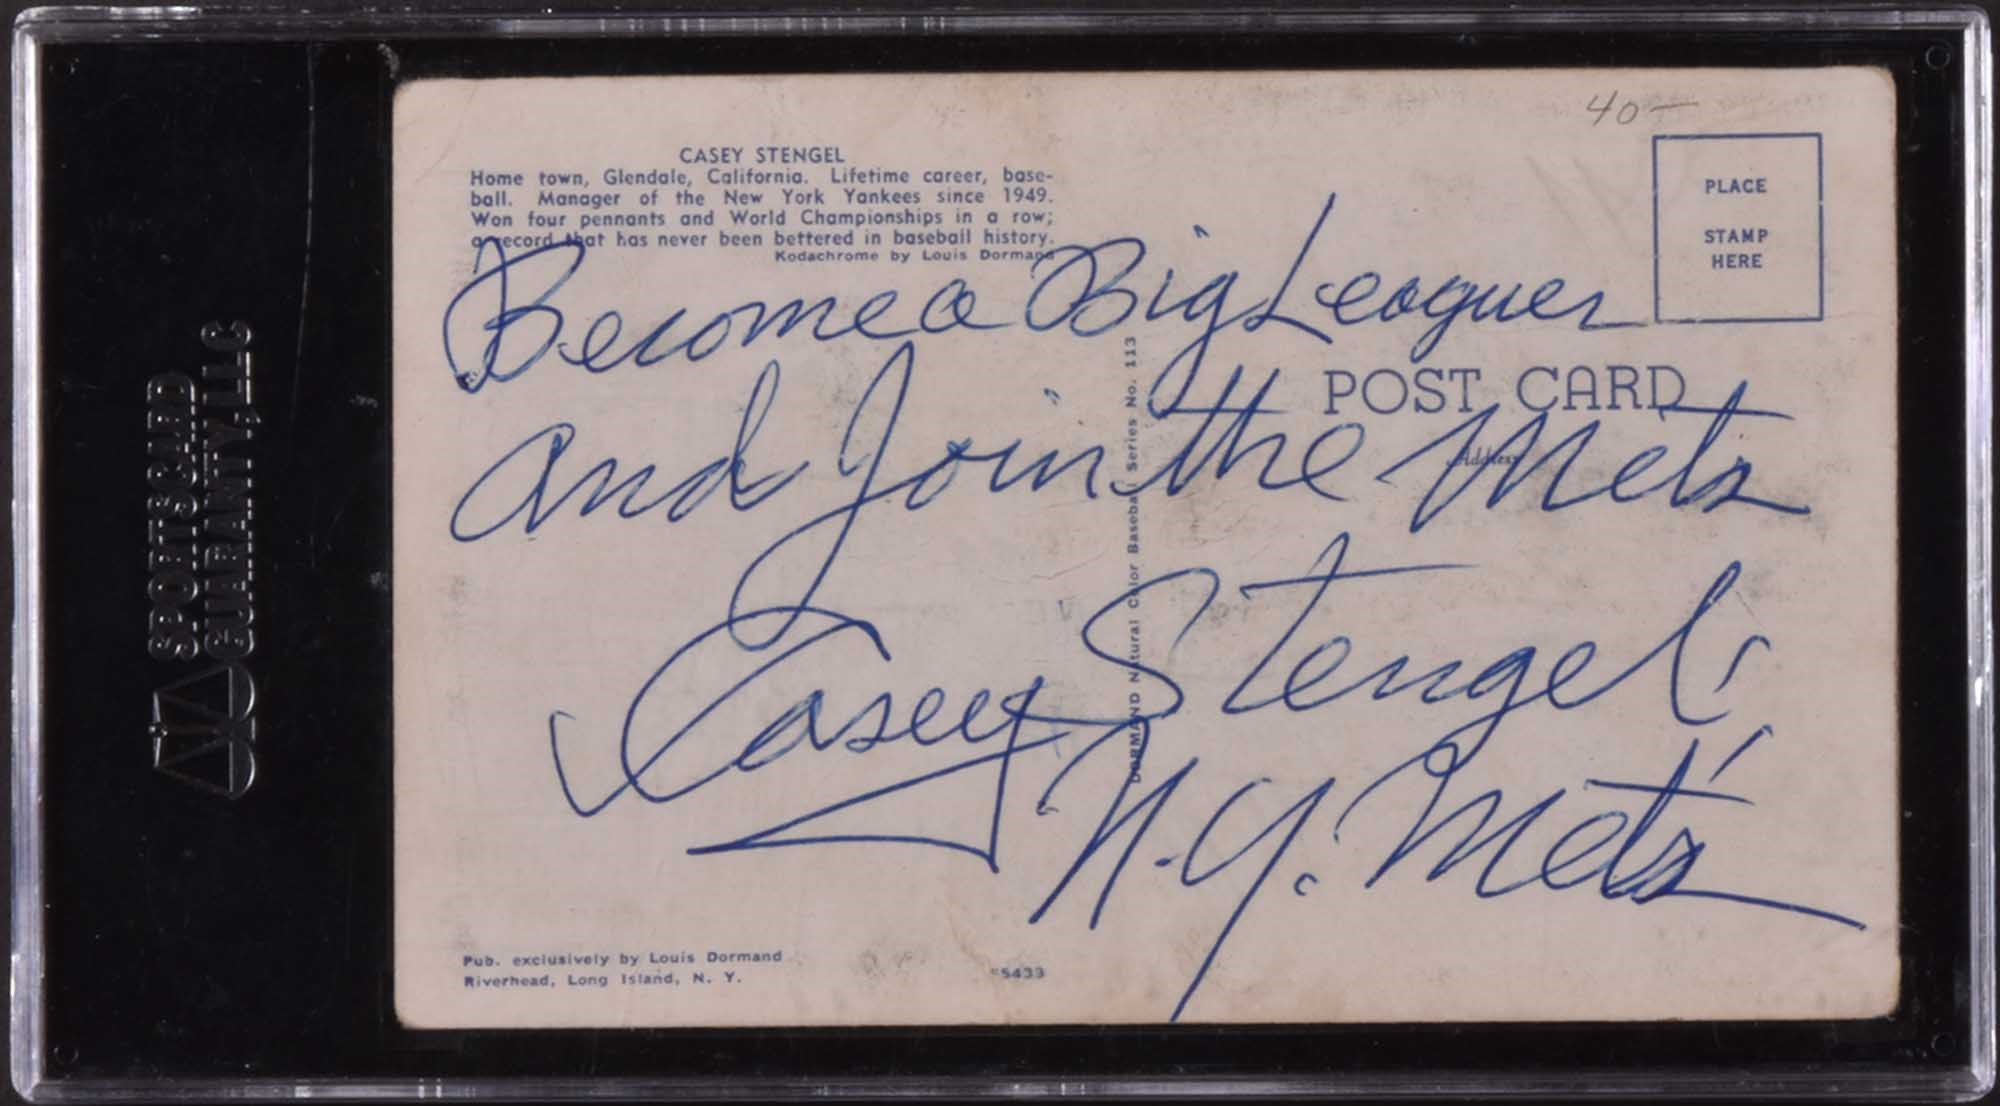 SPORTSCARD
GUARANTY, LLC
40-
CASEY STENGEL
Home town, Glendale, California. Lifetime career, base-
ball. Manager of the New York Yankees since 1949.
Won four pennants and World Championships in a row;
a record that has never been bettered in baseball history.
Kodachrome by Louis Dormand
PLACE
STAMP
HERE
Become a Big Leaguer
and Join the Mets
Casey Stengel
N.Y. Mets
POST CARD
Address
DORMAND Natural Color Baseball Series No. 113
Pub. exclusively by Louis Dormand
Riverhead, Long Island, N. Y.
5433